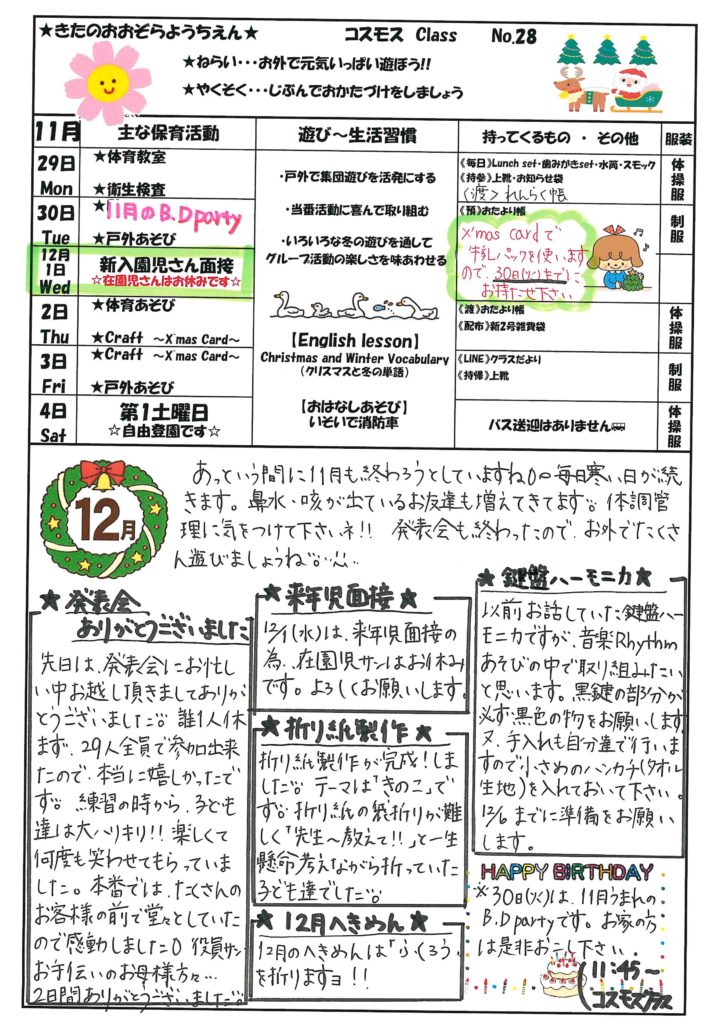 ★きたのおおぞらようちえん★ コスモス Class No.28
★ねらい・・・お外で元気いっぱい遊ぼう!!
★やくそく・・・じぶんでおかたづけをしましょう
11月 主な保育活動 遊び～生活習慣 持ってくるもの ・ その他 服装
29日 Mon
★体育教室
★衛生検査
30日 Tue
★11月のB.D party
★戸外あそび
12月1日 Wed
新入園児さん面接
☆在園児さんはお休みです☆
2日 Thu
★体育あそび
★Craft ～X'mas Card～
3日 Fri
★Craft ～X'mas Card～
★戸外あそび
4日 Sat
第1土曜日
☆自由登園です☆
・戸外で集団遊びを活発にする
・当番活動に喜んで取り組む
・いろいろな冬の遊びを通して
グループ活動の楽しさを味わあせる
【English lesson】
Christmas and Winter Vocabulary
(クリスマスと冬の単語)
【おはなしあそび】
いそいで消防車
《毎日》Lunch set・歯みがきset・水筒・スモック
《持参》上靴・お知らせ袋
〈渡〉れんらく帳
《預》おたより帳
X'mas cardで
牛乳パックを使います
ので、30日(火)までに
お持たせ下さい
《渡》おたより帳
《配布》新2号雑貨袋
《LINE》クラスだより
《持帰》上靴
バス送迎はありません
体操服
制服
体操服
制服
体操服
12月
あっという間に11月も終わろうとしていますね。毎日寒い日が続
きます。鼻水・咳が出ているお友達も増えてきてます。体調管
理に気をつけて下さいネ!! 発表会も終わったので、お外でたくさ
ん遊びましょうね。
★発表会
ありがとうございました
先日は、発表会にお忙し
い中お越し頂きましてありが
とうございました。誰1人休
まず、29人全員で参加出来
たので、本当に嬉しかったで
す。練習の時から、子ども
達は大ハリキリ!! 楽しくて
何度も笑わせてもらっていま
した。本番では、たくさんの
お客様の前で堂々としていた
ので感動しました。役員サン
お手伝いのお母様方々…
2日間ありがとうございました。
★来年児面接★
12/1(水)は、来年児面接の
為、在園児サンはお休み
です。よろしくお願いします。
★折り紙製作★
折り紙製作が完成!しま
した。テーマは「きのこ」で
す。折り紙の袋折りが難
しく「先生～教えて!!」と一生
懸命考えながら折っていた
子ども達でした。
★12月へきめん★
12月のへきめんは「ふくろう」
を折りますヨ!!
★鍵盤ハーモニカ★
以前お話していた鍵盤ハー
モニカですが、音楽Rhythm
あそびの中で取り組みたい
と思います。黒鍵の部分が
必ず黒色の物をお願いします
又、手入れも自分達で行いま
すので小さめのハンカチ(タオル
生地)を入れておいて下さい。
12/6までに準備をお願い
します。
HAPPY BIRTHDAY
※30日(火)は、11月うまれの
B.D partyです。お家の方
は是非お こし下さい。
11:45～
コスモスクラス